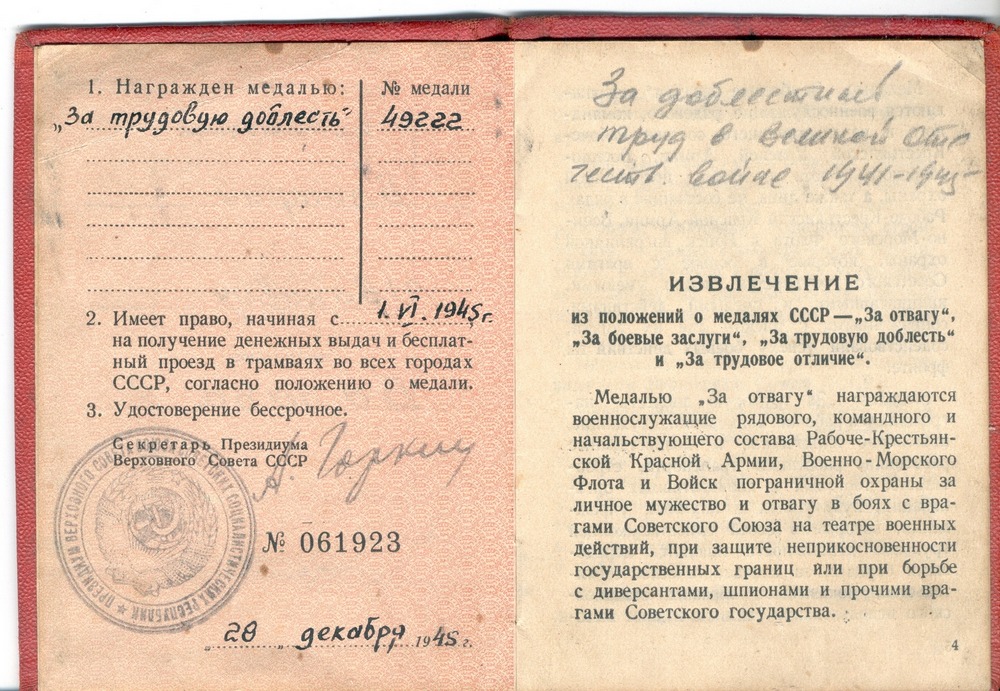 1. Награжден медалью:
№ медали
„За трудовую доблесть“
49222
2. Имеет право, начиная с 1.VI.1945г.
на получение денежных выдач и бесплат-
ный проезд в трамваях во всех городах
СССР, согласно положению о медали.
3. Удостоверение бессрочное.
Секретарь Президиума
Верховного Совета СССР
А. Горкин
ПРЕЗИДИУМ ВЕРХОВНОГО СОВЕТА СОЦИАЛИСТИЧЕСКИХ РЕСПУБЛИК
№ 061923
„28“ декабря 1945 г.
За доблестный
труд в Великой Оте
честв. войне 1941-1945
ИЗВЛЕЧЕНИЕ
из положений о медалях СССР — „За отвагу“,
„За боевые заслуги“, „За трудовую доблесть“
и „За трудовое отличие“.
Медалью „За отвагу“ награждаются
военнослужащие рядового, командного и
начальствующего состава Рабоче-Крестьян-
ской Красной Армии, Военно-Морского
Флота и Войск пограничной охраны за
личное мужество и отвагу в боях с вра-
гами Советского Союза на театре военных
действий, при защите неприкосновенности
государственных границ или при борьбе
с диверсантами, шпионами и прочими вра-
гами Советского государства.
4